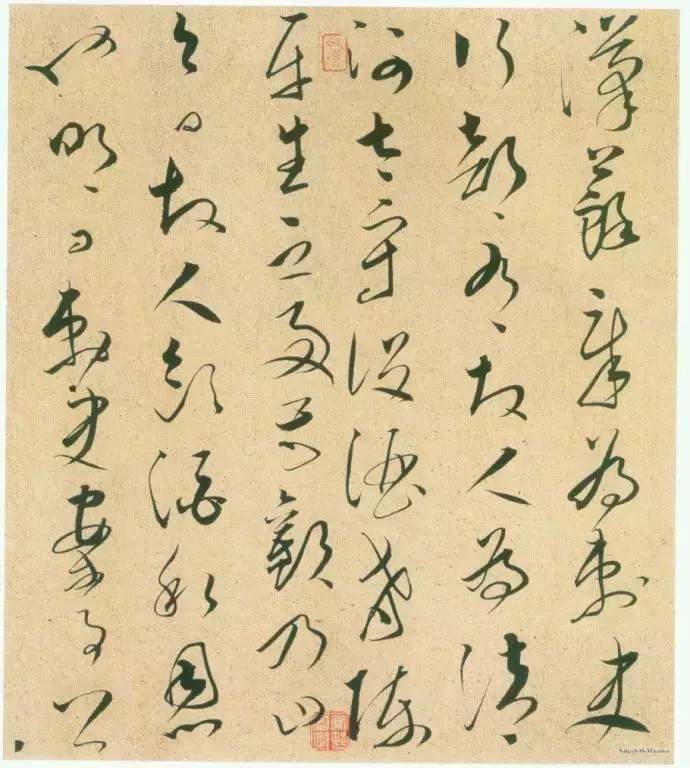 漢蘇章為刺史
行部有故人為清
河太守設酒肴陳
平生之好甚歡乃曰
今日故人飲酒私恩
也明日刺史案事公